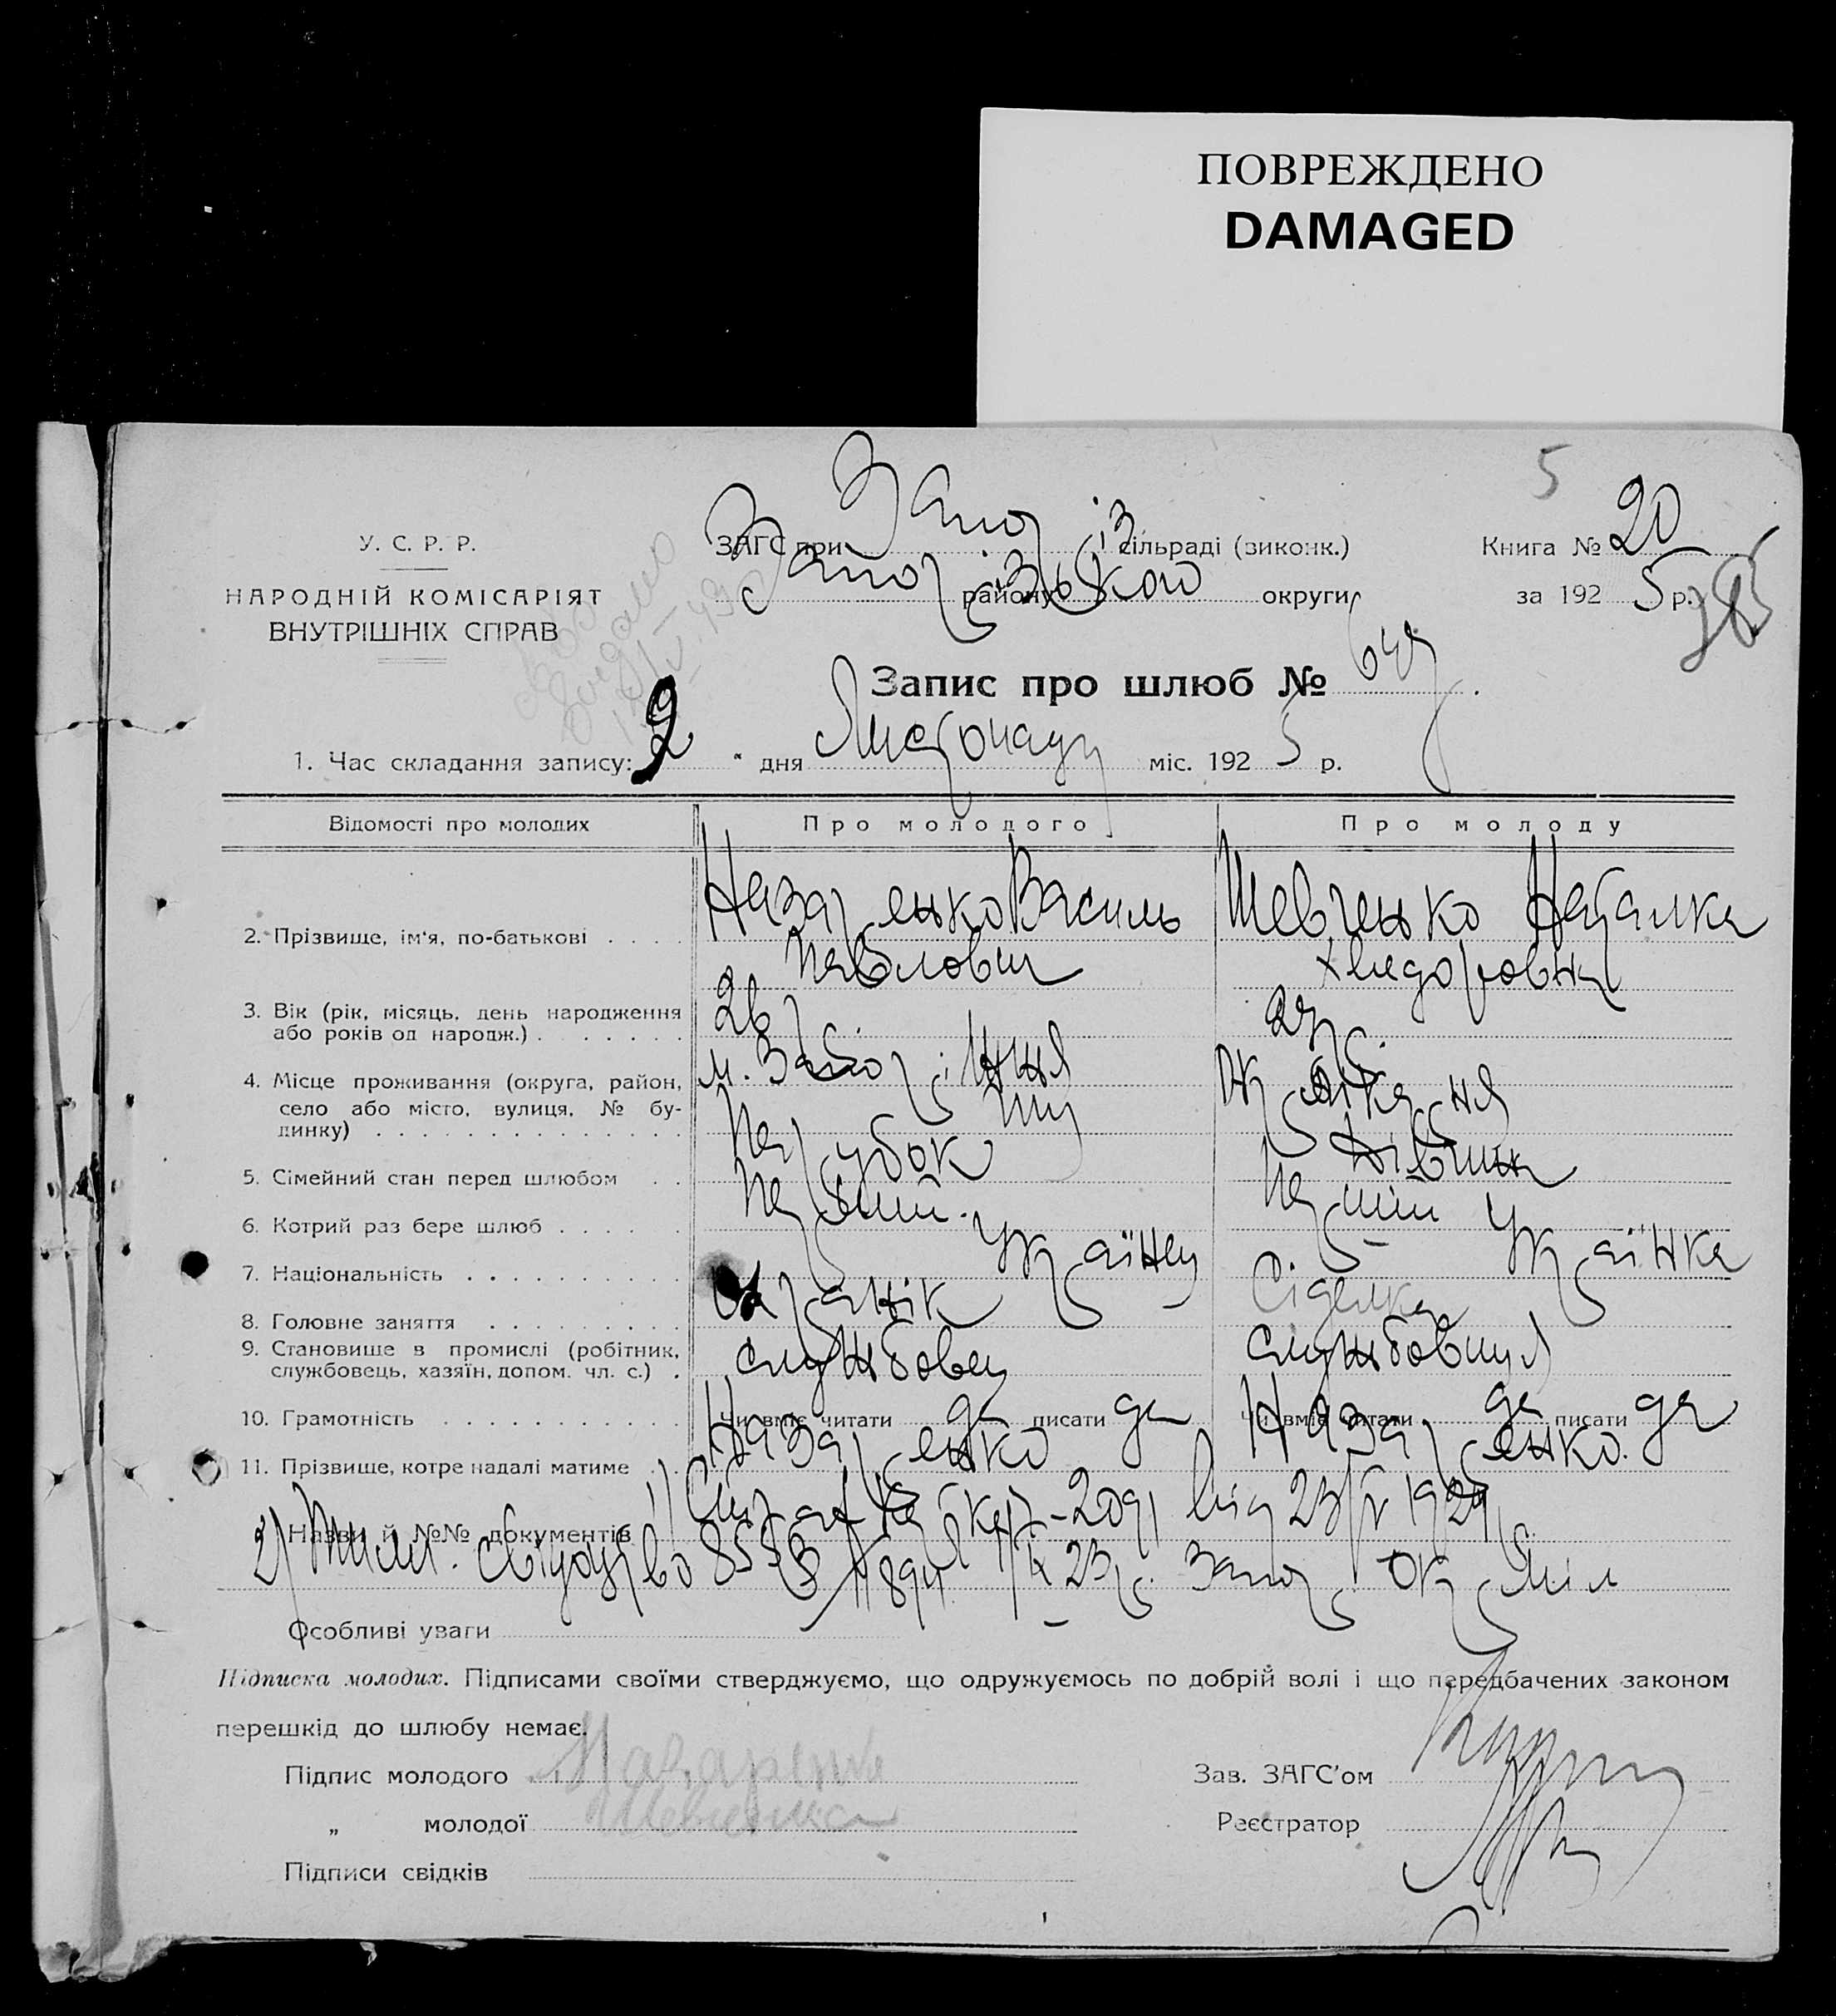 ПОВРЕЖДЕНО
DAMAGED
5
У. С. Р. Р.
НАРОДНІЙ КОМІСАРІЯТ
ВНУТРІШНІХ СПРАВ
ЗАГС при Запоріз сільраді (виконк.)
Запорізького району округи
Книга № 20
за 1925 р.
Запис про шлюб №
1. Час складання запису: 2 " дня Листопаду міс. 1925 р.
Відомості про молодих Про молодого Про молоду
2. Прізвище, ім'я, по-батькові . . . . Назаренко Василь Павлович Шевченко Наталка Хведоровна
3. Вік (рік, місяць, день народження
або років од народж.) . . . . . . . 26 р.
4. Місце проживання (округа, район,
село або місто, вулиця, № бу-
динку) . . . . . . . . . . . . . . м. Запоріжжя
5. Сімейний стан перед шлюбом . . Парубок Дівчина
6. Котрий раз бере шлюб . . . . . Перший. Перший
7. Національність . . . . . . . . . . Українец Українка
8. Головне заняття . . . . . . . . . Сіделка
9. Становище в промислі (робітник,
службовець, хазяїн, допом. чл. с.) . службовец службовиця
10. Грамотність . . . . . . . . . . . Чи вміє читати да писати да Чи вміє читати да писати да
11. Прізвище, котре надалі матиме . . Назаренко Назаренко.
Назви й №№ документів 1) від 23/V 192
2) свідоцтво 23 р. Запор. Окр
Особливі уваги
Підписка молодих. Підписами своїми стверджуємо, що одружуємось по добрій волі і що передбачених законом
перешкід до шлюбу немає.
Підпис молодого Назаренко
Зав. ЗАГС'ом
„ молодої Шевченко
Реєстратор
Підписи свідків